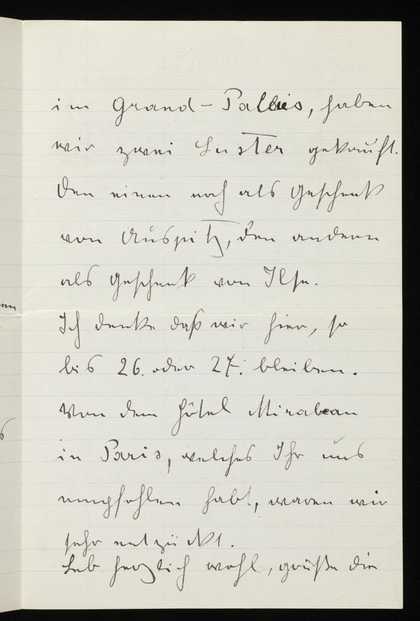 im Grand-Pallais, haben
wir zwei Luster gekauft.
Den einen noch als Geschenk
von Auspitz, den andern
als Geschenk von Ilse.
Ich denke daß wir hier, so
bis 26. oder 27. bleiben.
Von dem Hôtel Mirabeau
in Paris, welches Ihr uns
empfohlen habt, waren wir
sehr entzückt.
Leb herzlich wohl, grüße die